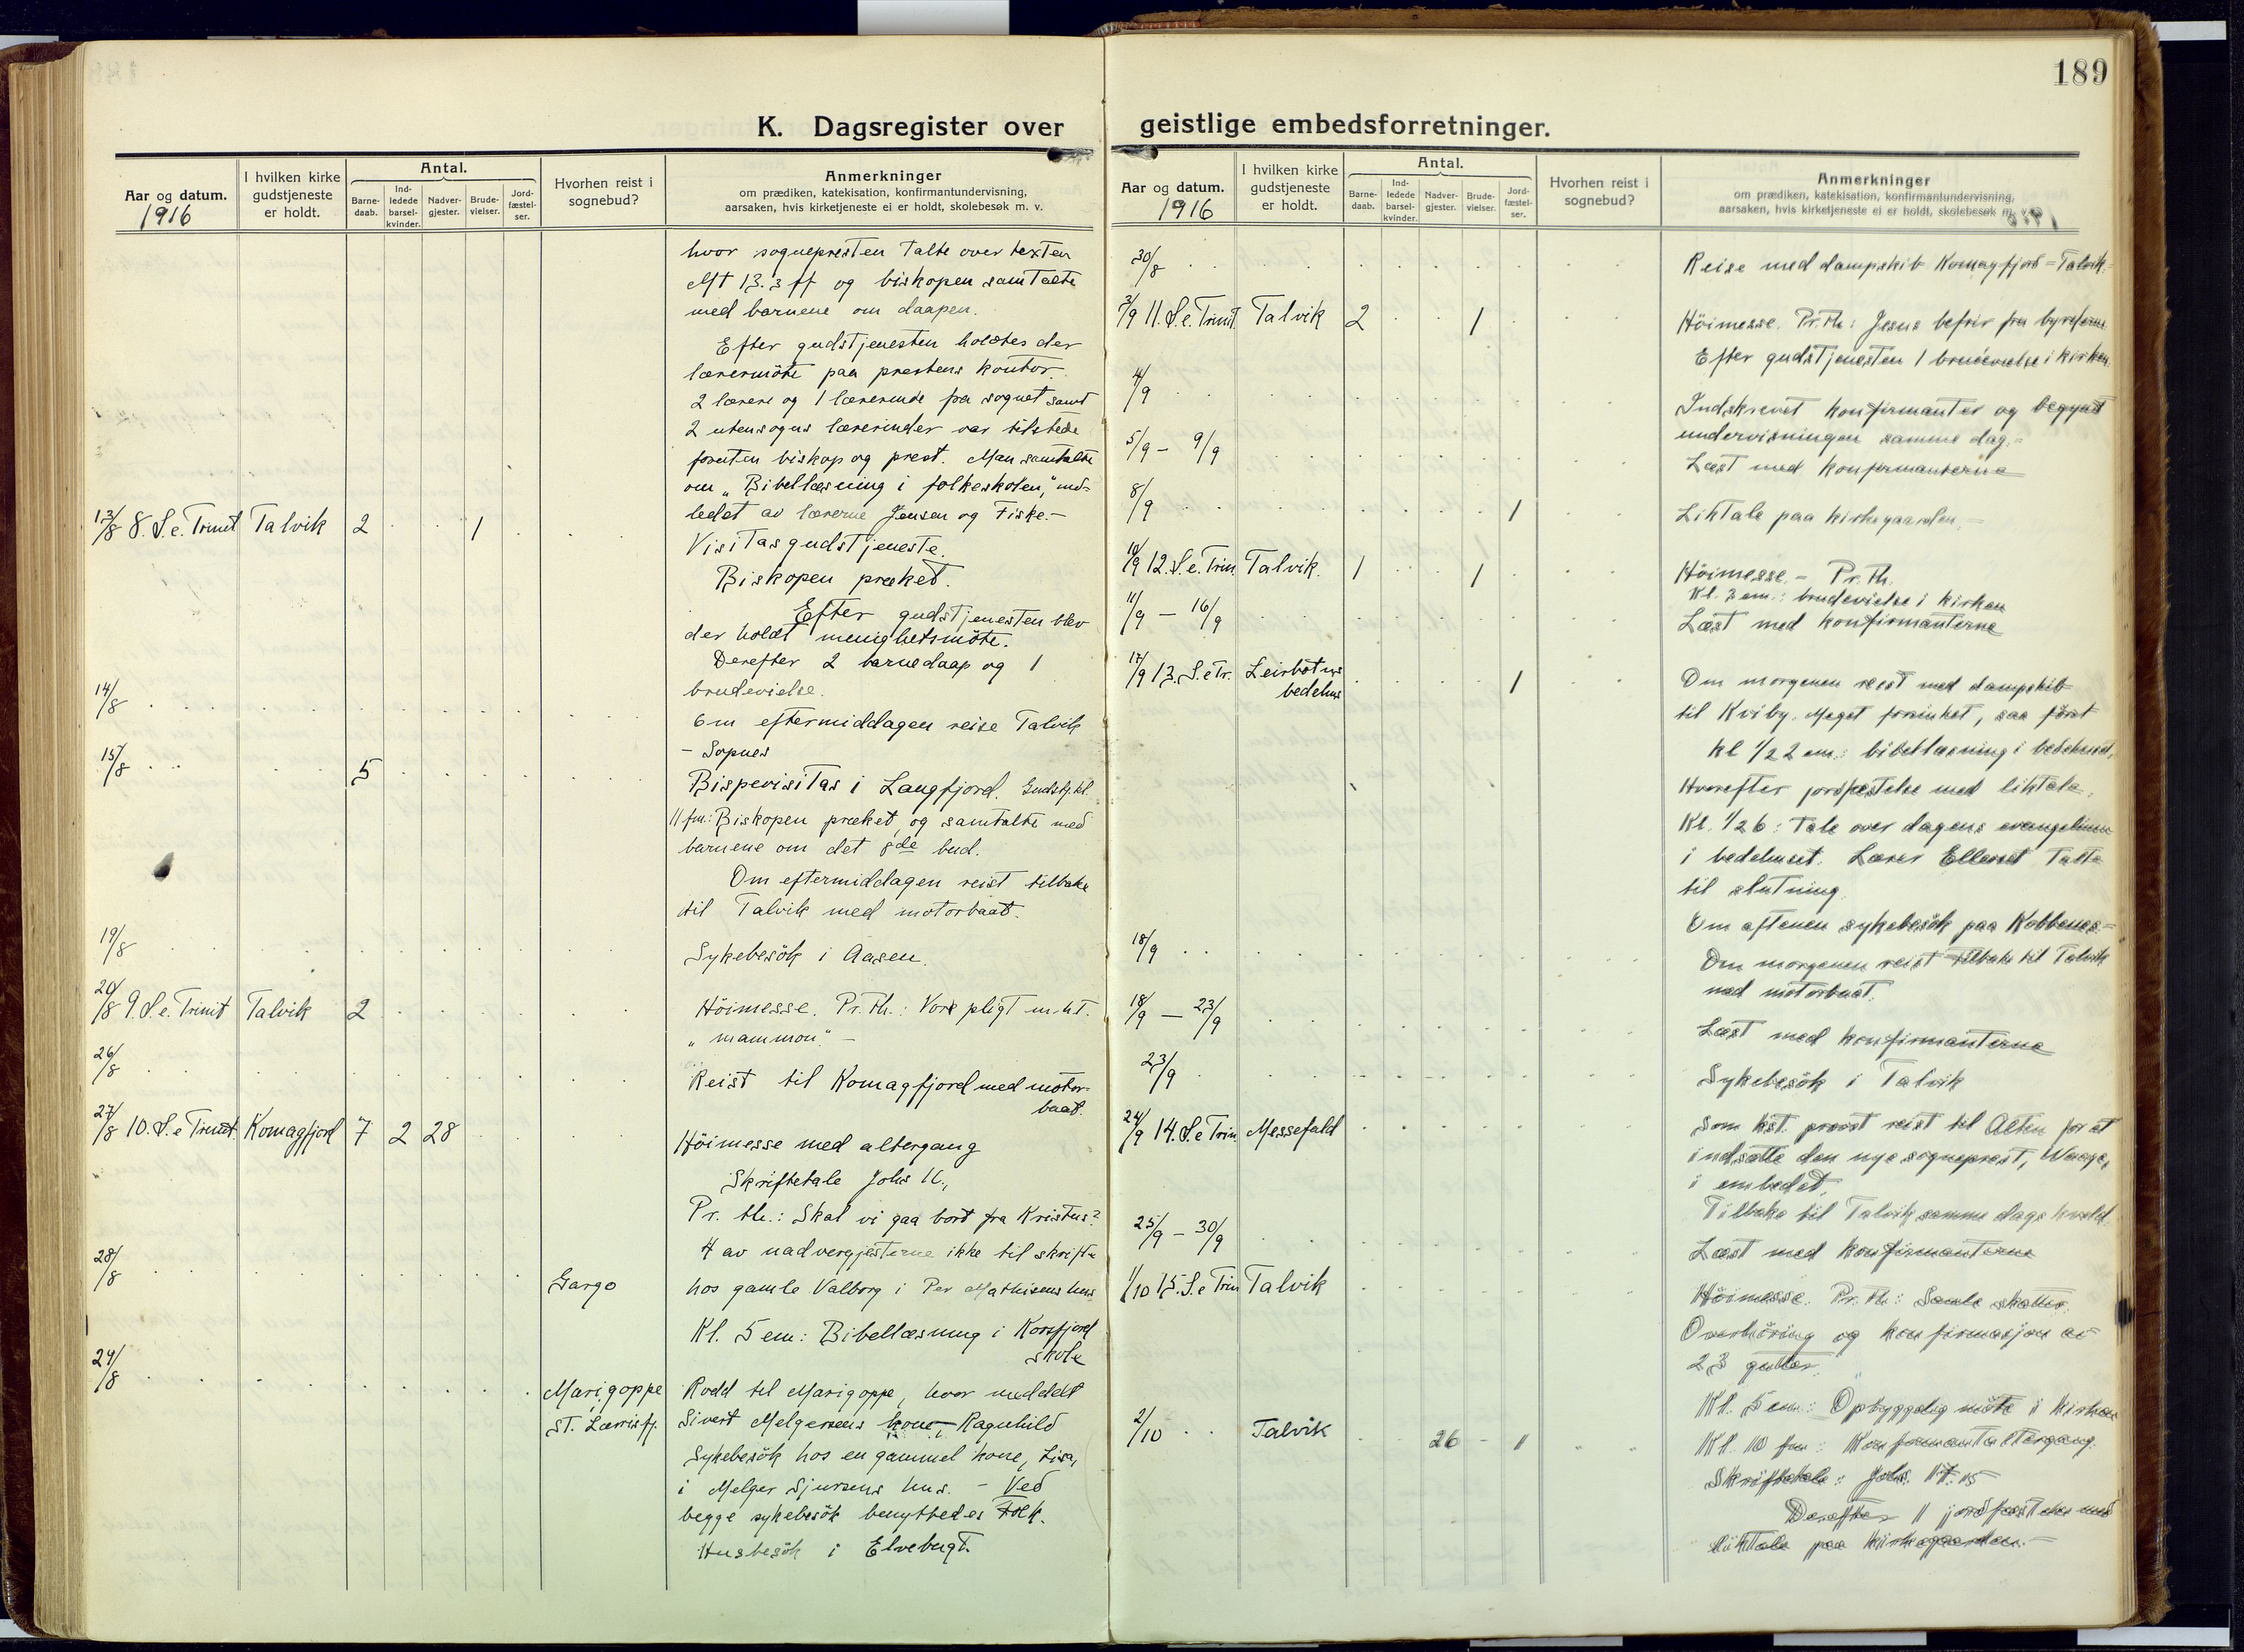 189
K. Dagsregister over geistlige embedsforretninger.
Aar og datum.
1916
I hvilken kirke gudstjeneste er holdt.
Antal.
Barne-daab.
Ind-ledede barsel-kvinder.
Nadver-gjester.
Brude-vielser.
Jord-fæstel-ser.
Hvorhen reist i sognebud?
Anmerkninger
om prædiken, katekisation, konfirmantundervisning,
aarsaken, hvis kirketjeneste ei er holdt, skolebesøk m. v.
hvor sognepresten talte over texten
Mt 13.3 ff og biskopen samtalte
med barnene om daapen.
Efter gudstjenesten holdtes der
lærermöte paa prestens kontor.
2 lærere og 1 lærerinde fra sognet samt
2 utensogns lærerinder var tilstede
foruten biskop og prest. Man samtalte
om „Bibellæsning i folkeskolen," ind-
ledet av lærerne Jensen og Fiske.-
13/8 8. S.e. Trinit Talvik 2 1
Visitasgudstjeneste.
Biskopen præket.
Efter gudstjenesten blev
der holdt menighetsmöte.
Derefter 2 barnedaap og 1
brudevielse.
14/8
Om eftermiddagen reise Talvik
- Sopnes
15/8 5
Bispevisitas i Langfjord. Gudstj. kl.
11 fm: Biskopen præket, og samtalte med
barnene om det 8de bud.
Om eftermiddagen reist tilbake
til Talvik med motorbaat.
19/8 Sykebesök i Aasen.
20/8 9. S.e. Trinit Talvik 2 Höimesse. Pr. th.: Vore pligt m.h.t.
„mammon." -
26/8 Reist til Komagfjord med motor-
baat.
27/8 10. S.e Trinit. Komagfjord 7 2 28
Höimesse med altergang
Skriftetale Johs 16,
Pr. th.: Skal vi gaa bort fra Kristus?
4 av nadvergjesterne ikke til skrifte
28/8 Gargo hos gamle Valborg i Per Mathisens hus
Kl. 5 em: Bibellæsning i Korsfjord
skole
29/8 Marigoppe Rodd til Marigoppe, hvor meddelt
St. Lærrisfj. Sivert Melgersens kone, Ragnhild
Sykebesök hos en gammel kone, Lisa,
i Melger Sjursens hus. - Ved
begge sykebesök benyttedes tolk.
Husbesök i Elvebugt.
Aar og datum.
1916
I hvilken kirke gudstjeneste er holdt.
Antal.
Barne-daab.
Ind-ledede barsel-kvinder.
Nadver-gjester.
Brude-vielser.
Jord-fæstel-ser.
Hvorhen reist i sognebud?
Anmerkninger
om prædiken, katekisation, konfirmantundervisning,
aarsaken, hvis kirketjeneste ei er holdt, skolebesøk m. v.
30/8 Reise med dampskib Komagfjord = Talvik.
3/9 11. S.e. Trinit. Talvik 2 1 Höimesse. Pr. th.: Jesus befrir fra
Efter gudstjenesten 1 brudevielse i kirken.
4/9 Indskrevet konfirmanter og begynt
undervisningen samme dag. =
5/9 - 9/9 Læst med konfirmanterne
8/9 1 Liktale paa kirkegaarden. =
10/9 12. S.e. Trin. Talvik. 1 1 Höimesse. - Pr. th.
Kl. 3 em.: brudevielse i kirken
11/9 - 16/9 Læst med konfirmanterne
17/9 13. S.e Tr. Leirbotns
bedehus 1
Om morgenen reist med dampskib
til Kviby. Meget forsinket, saa först
kl 1/2 2 em.: bibellæsning i bedehuset.
Hvorefter jordfæstelse med liktale.
Kl. 1/2 6: Tale over dagens evangelium
i bedehuset. Lærer Ellerset talte
til slutning.
Om aftenen sykebesök paa Kobbenes. =
18/9 Om morgenen reist tilbake til Talvik
med motorbaat.
18/9 - 23/9 Læst med konfirmanterne
23/9 Sykebesök i Talvik
24/9 14. S.e Trin. Messefald Som kst. provst reist til Alten for at
indsætte den nye sogneprest, Waage,
i embedet.
Tilbake til Talvik samme dags kveld.
25/9 - 30/9 Læst med konfirmanterne
1/10 15. S.e Trin Talvik Höimesse. Pr. th: Samle skatter.
Overhöring og konfirmasjon av
23 gutter.
Kl. 5 em: Opbyggelig möte i kirken
2/10 Talvik 26 1 Kl. 10 fm: Konfirmantaltergang.
Skriftetale: Johs. 17.15
Derefter 1 jordfæstelse med
liktale paa kirkegaarden. -